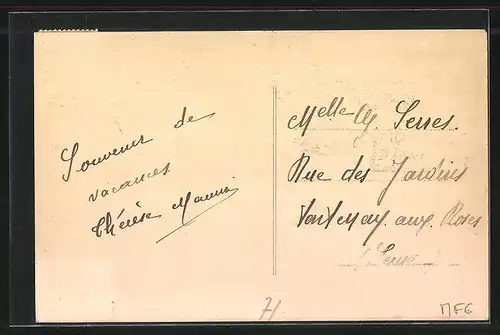 Souvenir de
vacances
Thérèse
Melle M. Serres.
Rue des Jardins
Fontenay aux Roses
Seine
71
MF6